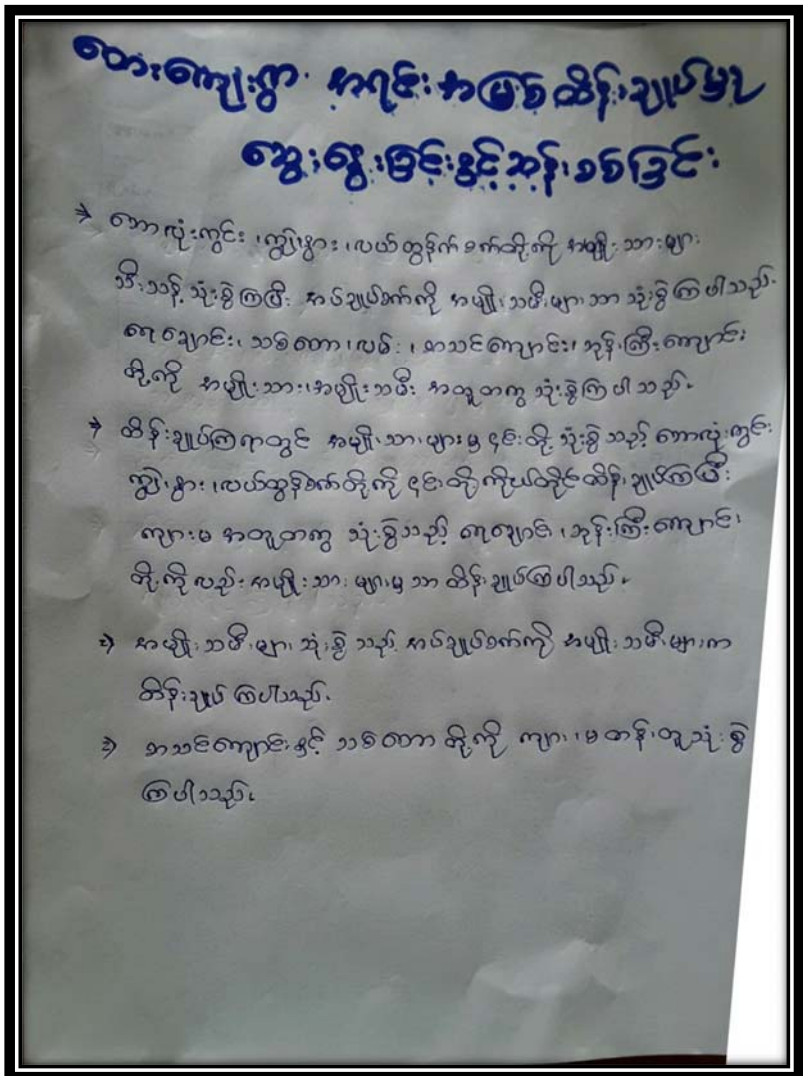 ကျေးရွာ အရင်းအမြစ်ထိန်းချုပ်မှု
ဆွေးနွေးခြင်းနှင့်ဆန်းစစ်ခြင်း
⇒ ဘောလုံးကွင်း၊ ကျွဲ၊ နွား၊ လယ်ထွန်စက်တို့ကို အမျိုးသားများ
သီးသန့် သုံးစွဲကြပြီး အပ်ချုပ်စက်ကို အမျိုးသမီးများသာ သုံးစွဲကြပါသည်။
ရေချောင်း၊ သစ်တော၊ လမ်း၊ စာသင်ကျောင်း၊ ဘုန်းကြီးကျောင်း
တို့ကို အမျိုးသား၊ အမျိုးသမီး အတူတကွ သုံးစွဲကြပါသည်။
⇒ ထိန်းချုပ်ကြရာတွင် အမျိုးသားများမှ ၎င်းတို့ သုံးစွဲသည့် ဘောလုံးကွင်း
ကျွဲ၊ နွား၊ လယ်ထွန်စက်တို့ကို ၎င်းတို့ကိုယ်တိုင်ထိန်းချုပ်ကြပြီး
ကျား၊မ အတူတကွ သုံးစွဲသည့် ရေချောင်း၊ ဘုန်းကြီးကျောင်း၊
တို့ကိုလည်း အမျိုးသားများမှသာ ထိန်းချုပ်ကြပါသည်။
⇒ အမျိုးသမီးများ သုံးစွဲသည့် အပ်ချုပ်စက်ကို အမျိုးသမီးများက
ထိန်းချုပ်ကြပါသည်။
⇒ စာသင်ကျောင်းနှင့် သစ်တောတို့ကို ကျား၊မ တန်းတူသုံးစွဲ
ကြပါသည်။